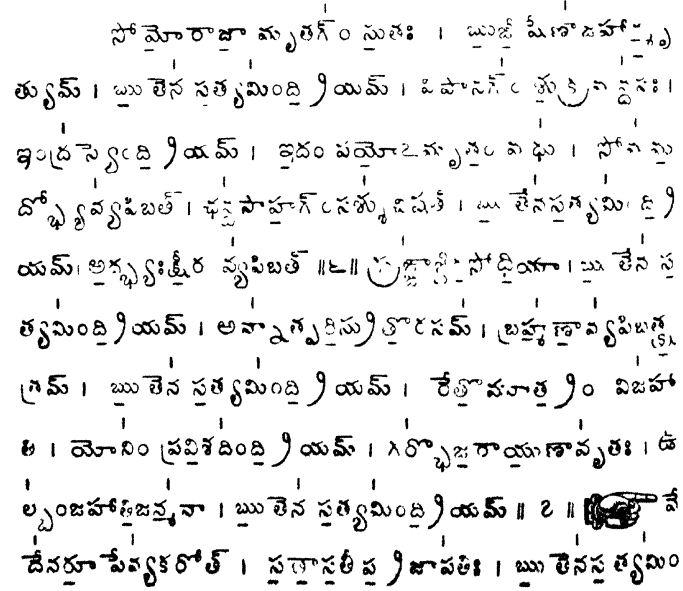 సోమోరాజా మృతగ్ం సుతః । ఋజీషేణాజహాన్మృ
త్యుమ్ । ఋతేన సత్యమింద్రియమ్ । విపానగ్ం శుక్రమన్ధసః।
ఇంద్రస్యేంద్రియమ్ । ఇదం పయోఽమృతం మధు । సోమమ
ద్భ్యోవ్యపిబత్ । ఛన్దసాహగ్ంసశ్శుచిషత్ । ఋతేనసత్యమింద్రి
యమ్। అద్భ్యఃక్షీరం వ్యపిబత్ ॥౬॥ సోధియా । ఋతేన స
త్యమింద్రియమ్ । అన్నాత్పరిస్రుతోరసమ్ । బ్రహ్మణావ్యపిబత్క్ష
త్రమ్ । ఋతేన సత్యమింద్రియమ్ । రేతోమూత్రం విజహా
తి । యోనిం ప్రవిశదింద్రియమ్ । గర్భోజరాయుణావృతః । ఉ
ల్బంజహాతిజన్మనా । ఋతేన సత్యమింద్రియమ్ ॥ ౭ ॥ వే
దేనరూపేవ్యకరోత్ । సతాసతీప్రజాపతిః । ఋతేనసత్యమిం